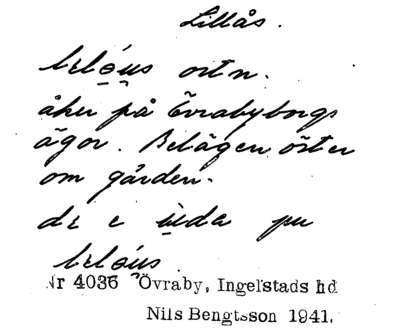 Lillås.
ortn.
åker på Övrabyborgs
ägor. Belägen öster
om gården.
Nr 4036 Övraby, Ingelstads hd
Nils Bengtsson 1941.